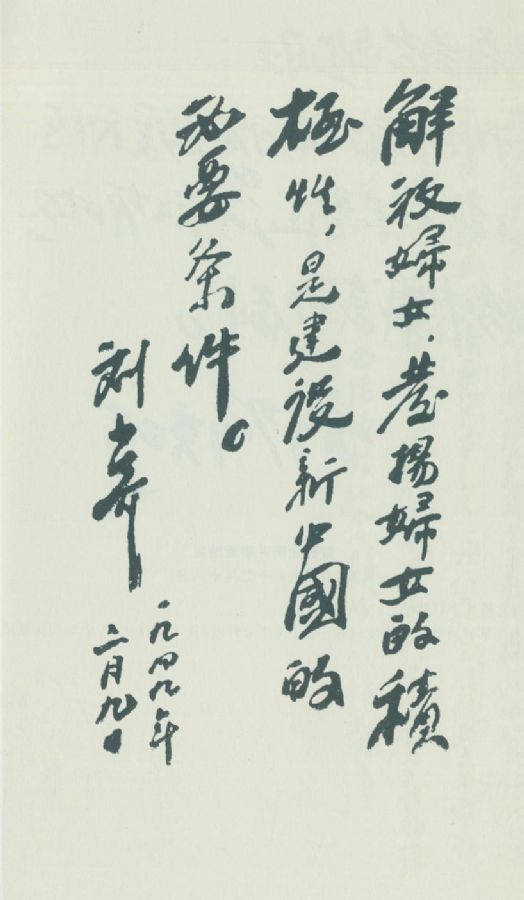 解放婦女、發揚婦女的積
极性，是建設新中國的
必要条件。
刘少奇
一九四九年
二月九日